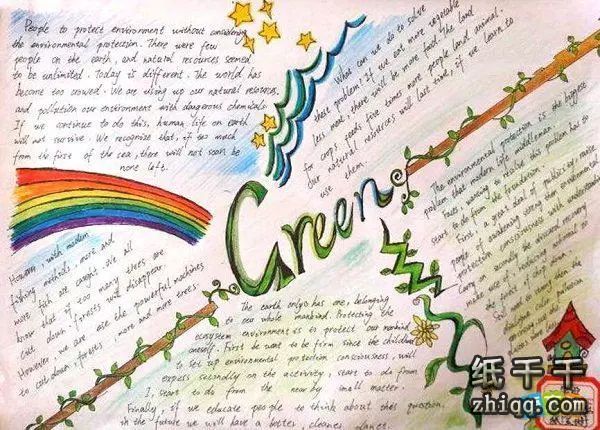 People to protect environment without considering
the environmental protection. There were few
people on the earth, and natural resources seemed
to be unlimited. Today is different. The world has
become too crowed. We are using up our natural resources,
and pollution our environment with dangerous chemicals.
If we continue to do this, human life on earth
will not survive. We recognize that, if too much
from the first of the sea, there will not soon be
none left.
However, with modern
fishing methods, more and
more fish are caught. We all
know that if too many trees are
cut down, forests will disappear
However, we are use the powerful machines
to cut down forests more and more trees
Green
What can we do to solve
these problem? If we eat more vegetable
less meat, there will be more land. The land
for crops feeds five times more people land animal.
Our natural resources will last time, if we learn to
use them
The environmental protection is the biggest
problem that modern life middleman
wanting to resolve this problem has to
start to do from the foundation.
First, a great deal of publicity, make
people of awakening strong environmental
consciousness with understanding
secondly the divided recovery
make use of, reducing
pollution
The earth only has one, belonging
to our whole mankind. Protecting the
ecosystem environment is to protect our mankind
oneself. First be want to be firm since the childhood
to set up environmental protection consciousness, will
express secondly on the activity, start to do from
I, start to do from the near by small matter.
Finally, if we educate people to think about this question,
in the future we will have a better, cleaner planet.
纸千千
zhiqq.com